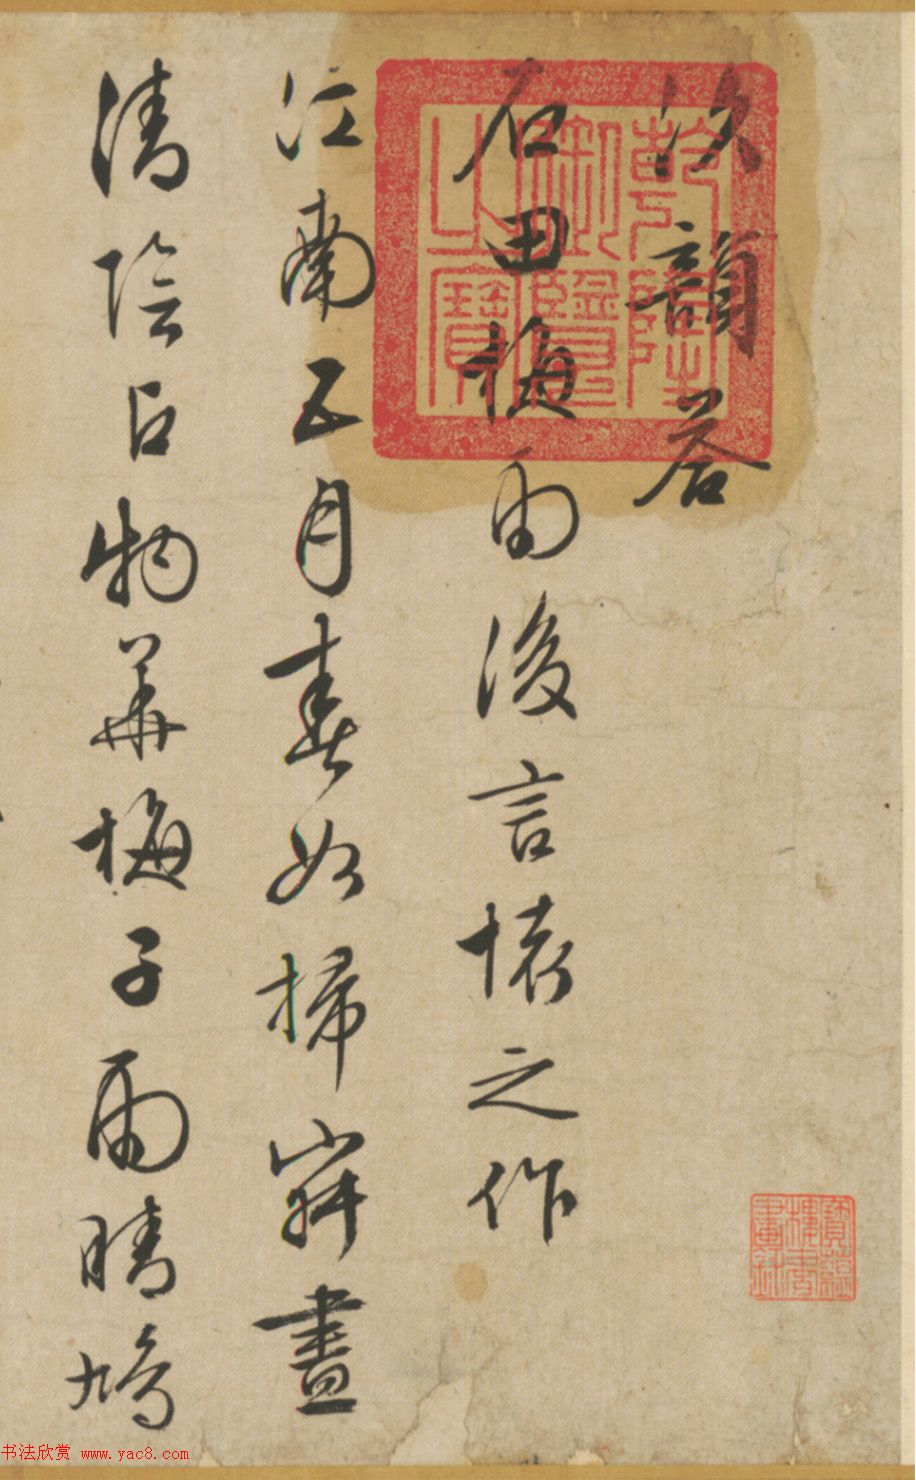 次韻荅
石田梅雨後言懷之作
江南五月春如掃寂畫
清陰占物華梅子雨晴鳩
乾隆御覽之寶
寶蘊樓書畫錄
书法欣赏 www.yac8.com